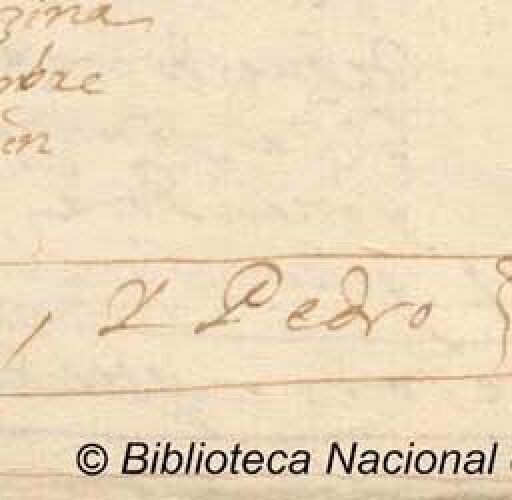 zina
mbre
en
, Y Pedro
© Biblioteca Nacional